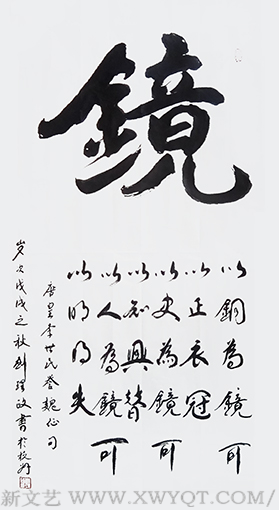 鏡
以銅為鏡可
以正衣冠
以史為鏡可
以知興替
以人為鏡可
以明得失
唐皇李世民答魏征句
岁次戊戌之秋劉政書於
新文艺 WWW.XWYQT.COM